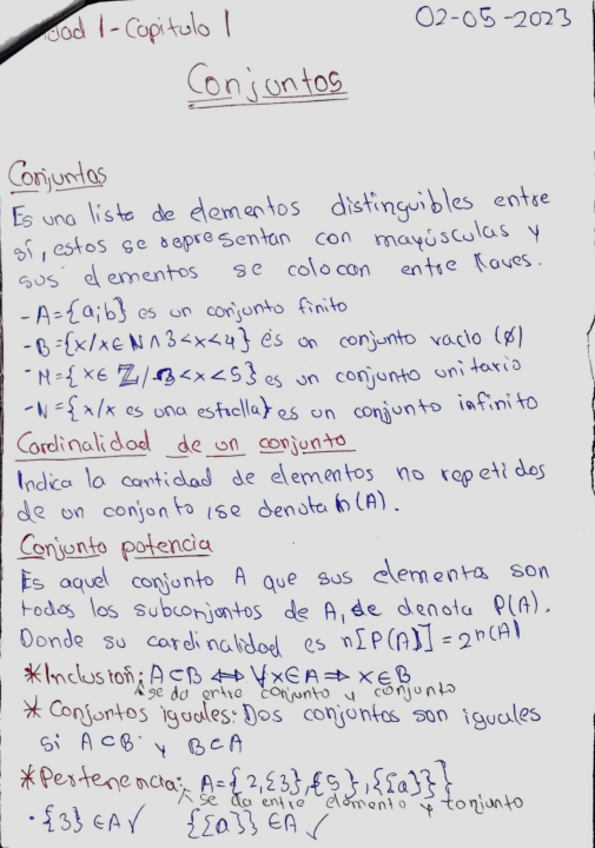 dad 1-Capitulo 1
02-05-2023
Conjuntos
Conjuntos
Es una lista de elementos distinguibles entre
sí, estos se representan con mayúsculas y
sus elementos se colocan entre llaves.
-A={a;b} es un conjunto finito
-B={x/x∈N∧3<x<4} es un conjunto vacío (ø)
-M={x∈ℤ/3<x<5} es un conjunto unitario
-N={x/x es una estrella} es un conjunto infinito
Cardinalidad de un conjunto
Indica la cantidad de elementos no repetidos
de un conjunto, se denota n(A).
Conjunto potencia
Es aquel conjunto A que sus elementos son
todos los subconjuntos de A, se denota P(A).
Donde su cardinalidad es n[P(A)]=2n(A)
*Inclusión: A⊂B ⟺ ∀x∈A⇒ x∈B
se da entre conjunto y conjunto
* Conjuntos iguales: Dos conjuntos son iguales
si A⊂B y B⊂A
*Pertenencia: A={2,{3},{5},{{a}}}
se da entre elemento y conjunto
·{3}∈A✓ {{a}}∈A✓